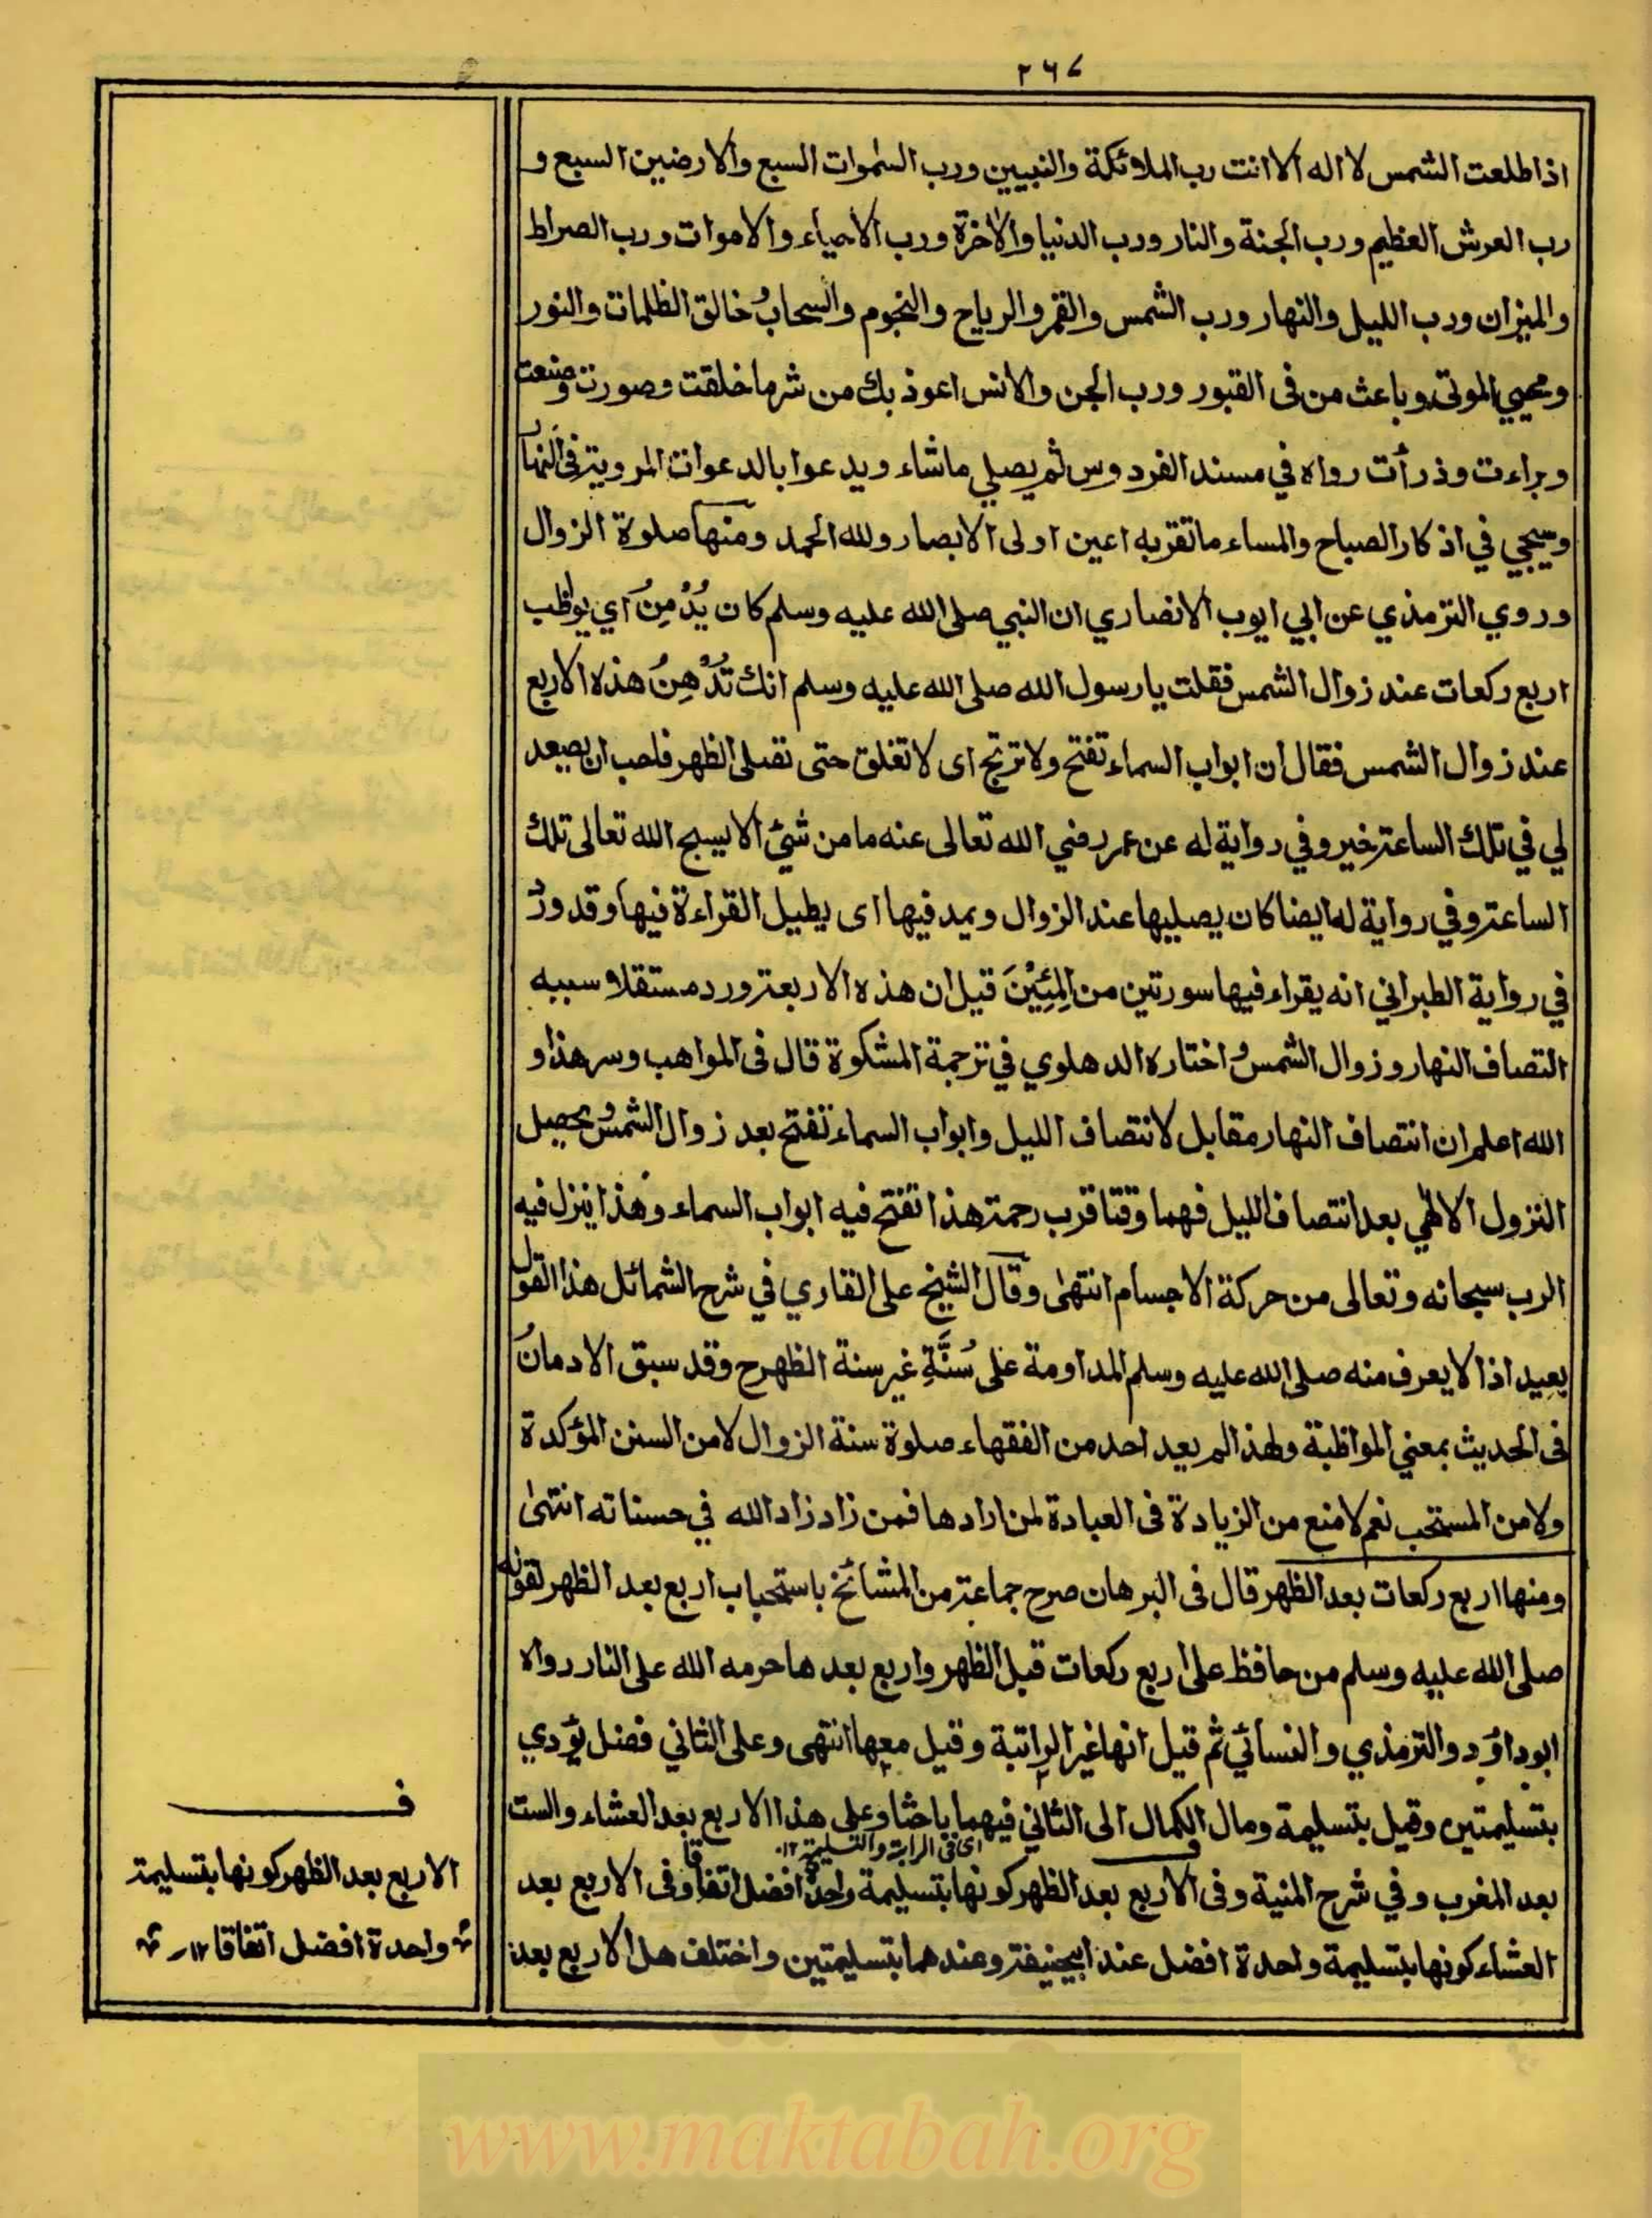 ٢٦٧
اذا طلعت الشمس لا اله الا انت رب الملائكة والنبيين ورب السموات السبع والارضين السبع و
رب العرش العظيم ورب الجنة والنار ورب الدنيا والاخرة ورب الاحياء والاموات ورب الصراط
والميزان ورب الليل والنهار ورب الشمس والقمر والرياح والنجوم والسحاب وخالق الظلمات والنور
ومحيي الموتى وباعث من فى القبور ورب الجن والانس اعوذ بك من شر ما خلقت وصورت وصنعت
وبراءت وذرأت رواه في مسند الفردوس ثم يصلي ما شاء ويدعوا بالدعوات المروية فى النهار
وسيجي في اذكار الصباح والمساء ما تقر به اعين اولى الابصار ولله الحمد ومنها صلوة الزوال
وروي الترمذي عن ابي ايوب الانصاري ان النبي صلى الله عليه وسلم كان يُدْمِنُ اي يواظب
اربع ركعات عند زوال الشمس فقلت يا رسول الله صلى الله عليه وسلم انك تُدْهِنُ هذه الاربع
عند زوال الشمس فقال ان ابواب السماء تفتح ولا ترتج اى لا تغلق حتى تصلى الظهر فاحب ان يصعد
لي في تلك الساعة خير وفي رواية له عن عمر رضي الله تعالى عنه ما من شيئ الا يسبح الله تعالى تلك
الساعة وفي رواية له ايضا كان يصليها عند الزوال ويمد فيها اى يطيل القراءة فيها وقد ورد
في رواية الطبراني انه يقراء فيها سورتين من المِئِيْنَ قيل ان هذه الاربعة ورد مستقلا سببه
انتصاف النهار وزوال الشمس واختاره الدهلوي في ترجمة المشكوة قال فى المواهب وسر هذا و
الله اعلم ان انتصاف النهار مقابل لانتصاف الليل وابواب السماء تفتح بعد زوال الشمس ويحصل
النزول الالهي بعد انتصاف الليل فهما وقتا قرب رحمة هذا تفتح فيه ابواب السماء وهذا ينزل فيه
الرب سبحانه وتعالى من حركة الاجسام انتهى وقال الشيخ على القاري في شرح الشمائل هذا القول
بعيد اذ لا يعرف منه صلى الله عليه وسلم المداومة على سُنَّةِ غير سنة الظهر ح وقد سبق الادمانُ
فى الحديث بمعني المواظبة ولهذا لم يعد احد من الفقهاء صلوة سنة الزوال لا من السنن المؤكدة
ولا من المستحب نعم لا منع من الزيادة فى العبادة لمن ارادها فمن زاد زاد الله في حسناته انتهى
ومنها اربع ركعات بعد الظهر قال فى البرهان صرح جماعة من المشائخ باستحباب اربع بعد الظهر لقوله
صلى الله عليه وسلم من حافظ على اربع ركعات قبل الظهر واربع بعدها حرمه الله على النار رواه
ابو داؤد والترمذي والنسائي ثم قيل انها غير الراتبة وقيل معها انتهى وعلى الثاني فضل يؤدي
بتسليمتين وقيل بتسليمة ومال الكمال الى الثاني فيهما باحثا وعلى هذا الاربع بعد العشاء والست
اى فى الراتبة والتسليمة ١٢
بعد المغرب وفي شرح المنية وفى الاربع بعد الظهر كونها بتسليمة واحدة افضل اتفاقا وفى الاربع بعد
العشاء كونها بتسليمة واحدة افضل عند ابيحنيفة وعندهما بتسليمتين واختلف هل الاربع بعد
ف
الاربع بعد الظهر كونها بتسليمة
واحدة افضل اتفاقا ١٢
www.maktabah.org